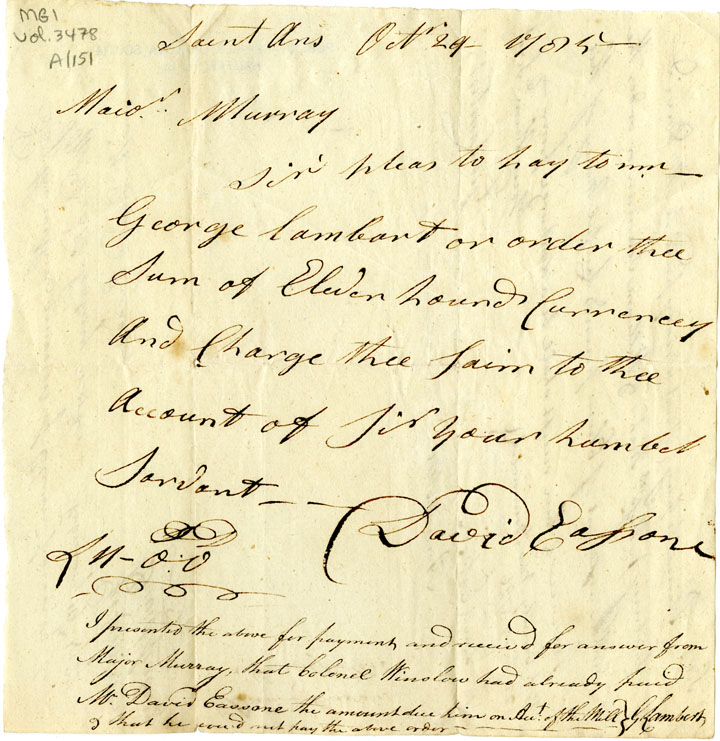 MG1
Vol. 3478
A/151
Saint Ans Octr 29 1785
Maior Murray
Sir pleas to pay to mr
George Lambart or order thee
Sum of Eleven pound Currencey
And Charge thee Saim to thee
Account of Sir your humbel
Sarvant
David Eassone
£11-0.0
I presented the above for payment and receiv'd for answer from
Major Murray, that Colonel Winslow had already paid
Mr. David Eassone the amount due him on Act. of the Mill } G Lambert
& that he would not pay the above order